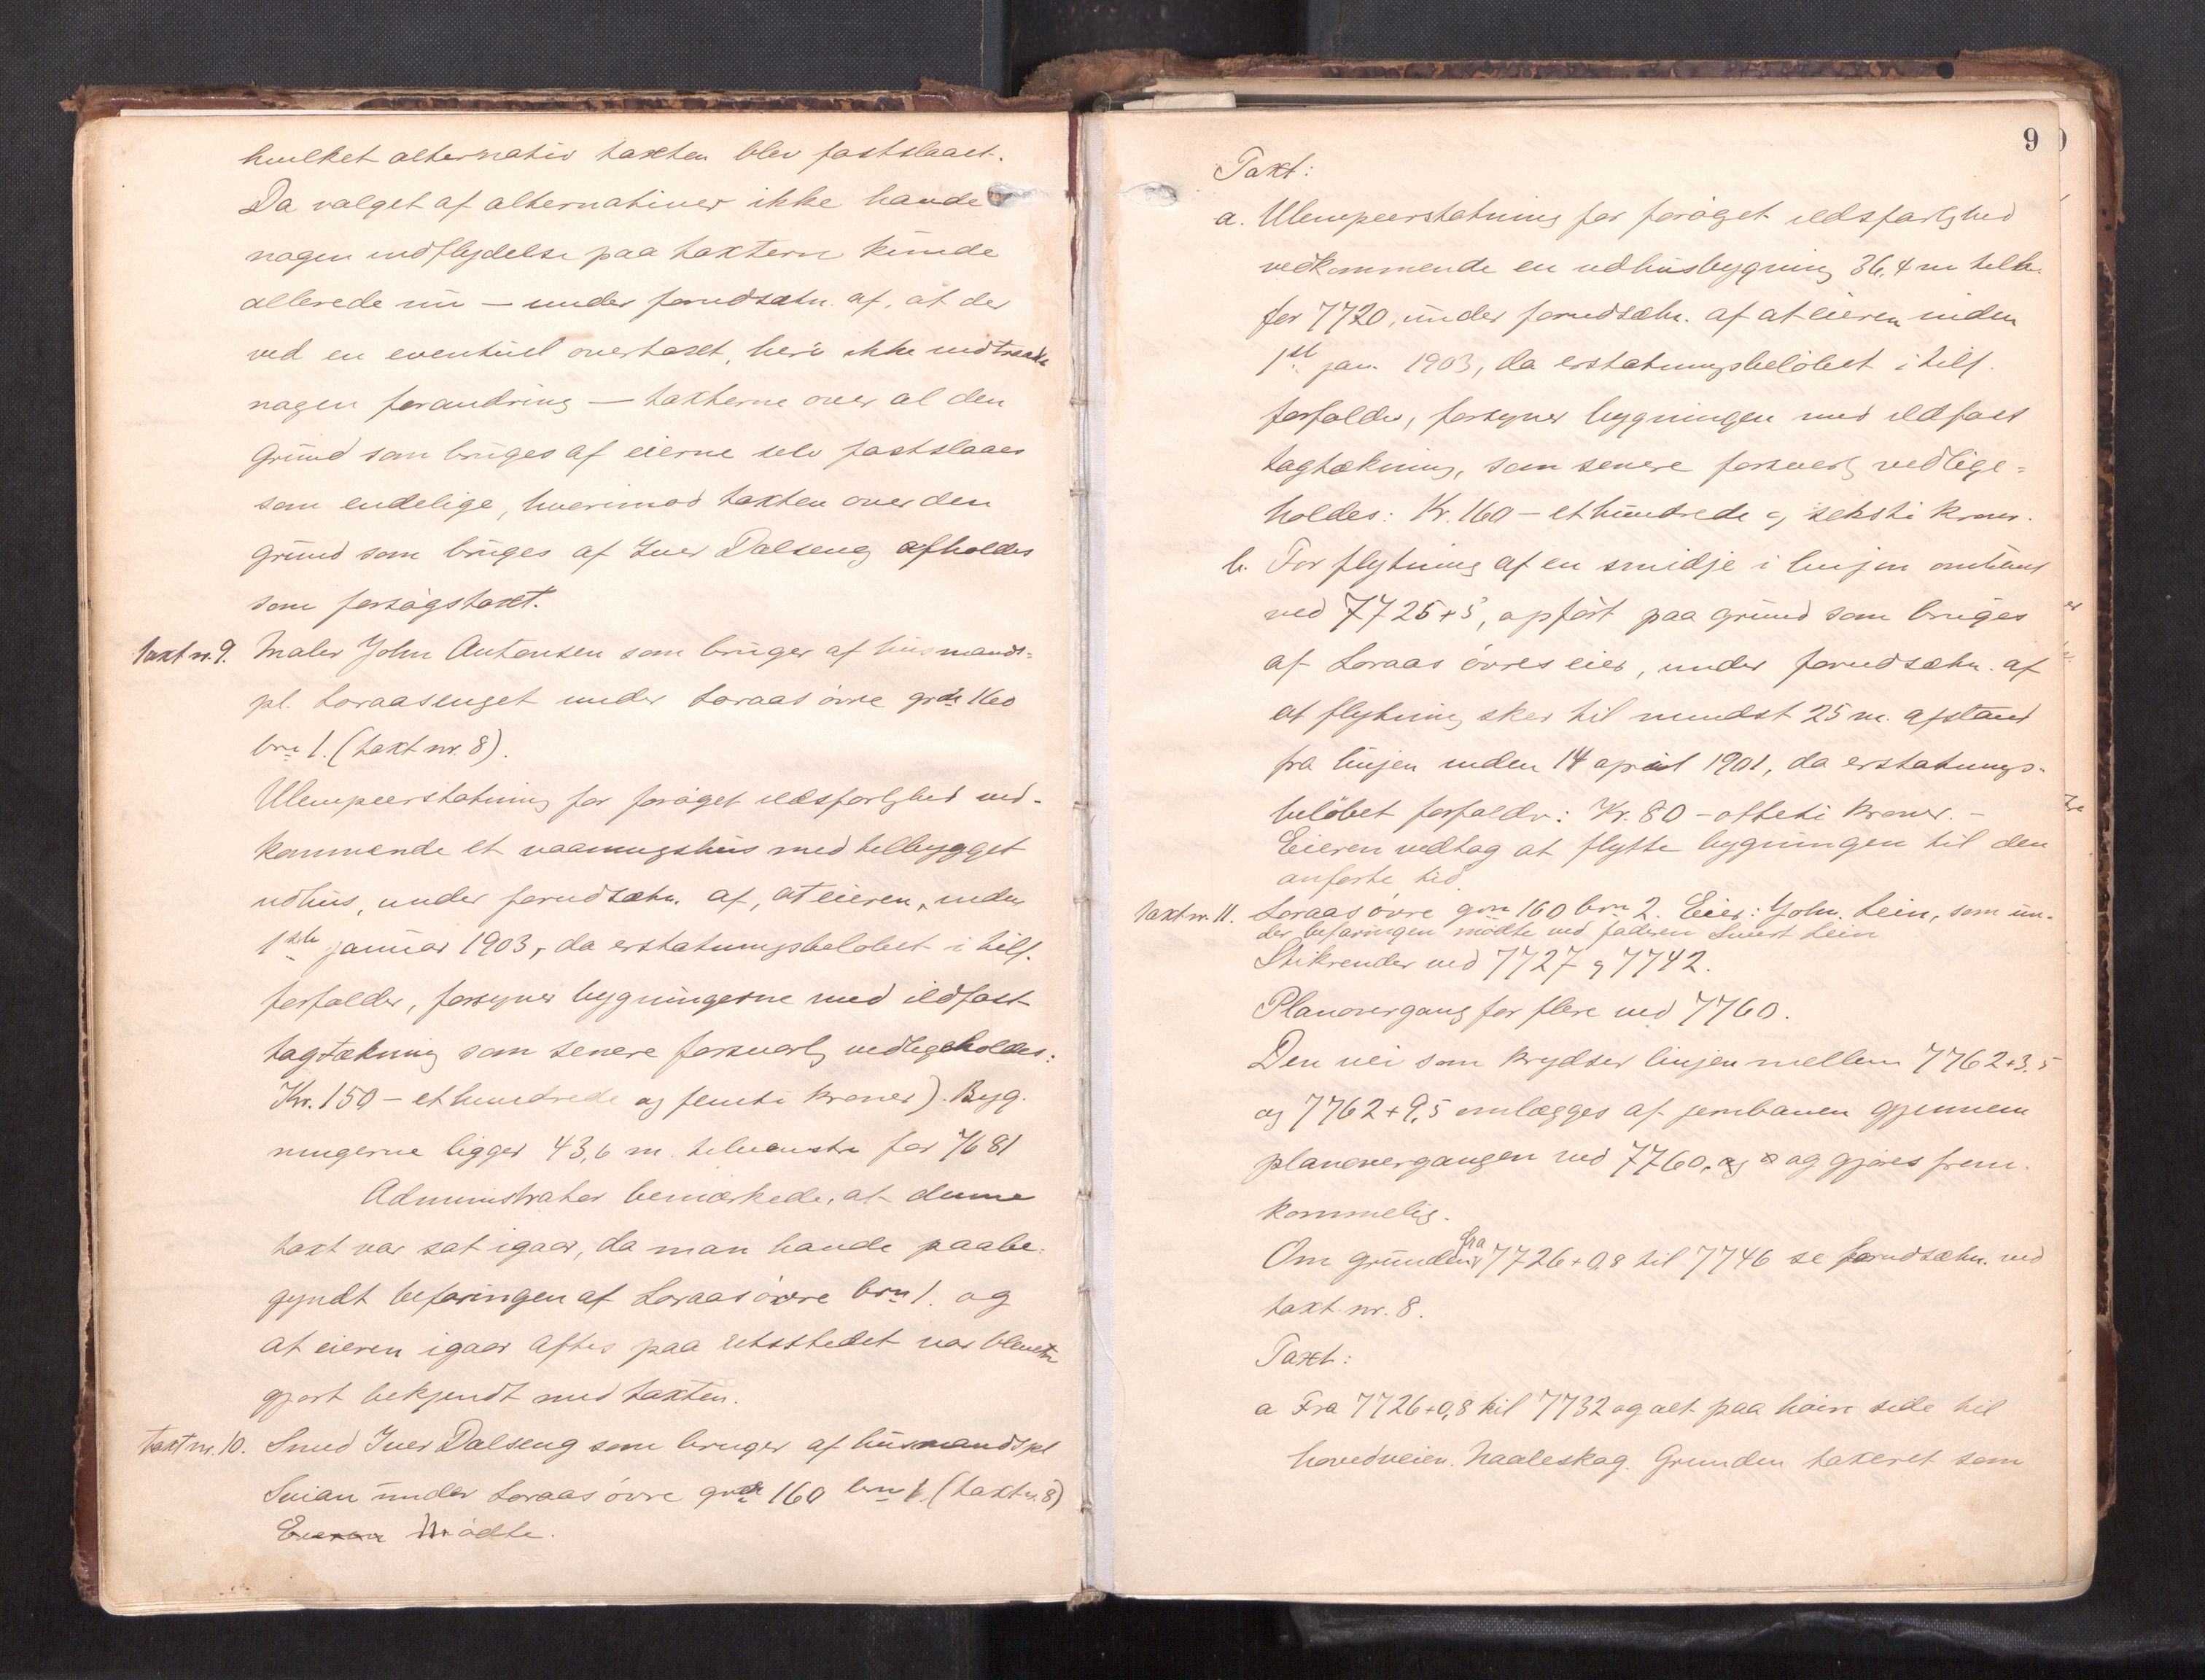 hvilket alternativ taxten blev fastslaaet.
Da valget af alternativer ikke havde
nogen indflydelse paa taxterne kunde
allerede nu – under forudsætn. af, at der
ved en eventuel overtaxt, heri ikke indtraadte
nogen forandring – taxterne over al den
grund som bruges af eierne selv fastslaaes
som endelige, hvorimod taxten over den
grund som bruges af Iver Dalseng afholdes
som forsøgstaxt.
Taxt nr. 9. Maler John Antonsen som bruger af husmands-
pl. Loraasenget under Loraas övre grdn 160
brn 1. (taxt nr. 8).
Ulempeerstatning for foröget ildsfarlghed ved-
kommende et vaaningshus med tilbygget
udhus, under forudsætn. af, at eieren, inden
1ste januar 1903, da erstatningsbelöbet i tilf.
forfalder, forsyner bygningerne med ildfast
tagtækning som senere forsvarlg vedligeholdes:
Kr. 150 – et hundrede og femti kroner). Byg-
ningerne ligger 43,6 m. tilvenstre for 7681
Administrator bemærkede, at denne
taxt var sat igaar, da man havde paabe-
gyndt befaringen af Loraas övre brn 1. og
at eieren igaar aftes paa retsstedet var bleven
gjort bekjendt med taxten.
Taxt nr. 10. Smed Iver Dalseng som bruger af husmandspl
Svian under Loraas övre grdn 160 brn 1 (taxt nr. 8)
Eieren Mödte.
9
Taxt:
a. Ulempeerstatning for foröget ildsfarlghed
vedkommende en udhusbygning 36,4 m tilh.
for 7720, under forudsætn. af at eieren inden
1ste jan. 1903, da erstatningsbelöbet i tilf.
forfalder, forsyner bygningen med ildfast
tagtækning, som senere forsvarlg vedlige-
holdes: Kr. 160 – et hundrede og seksti kroner.
b. For flytning af en smidje i linjen omtrent
ved 7725+5, opfört paa grund som bruges
af Loraas övres eier, under forudsætn. af
at flytning sker til mindst 25 m. afstand
fra linjen inden 14 april 1901, da erstatnings-
belöbet forfalder: Kr. 80 – otteti kroner. –
Eieren vedtog at flytte bygningen til den
anförte tid.
Taxt nr. 11. Loraas övre grn 160 brn 2. Eier: John. Lein, som un-
der befaringen mödte ved faderen Sivert Lein
Stikrender ved 7727 og 7742.
Planovergang for flere ved 7760.
Den vei som krydser linjen mellem 7762+3,5
og 7762+9,5 omlægges af jernbanen gjennem
planovergangen ved 7760, og og gjøres frem-
kommelig.
Om grunden fra 7726+0,8 til 7746 se forudsætn. ved
taxt nr. 8.
Taxt:
a Fra 7726+0,8 til 7732 og alt paa höire side til
hovedveien. Naaleskog. Grunden taxeret som